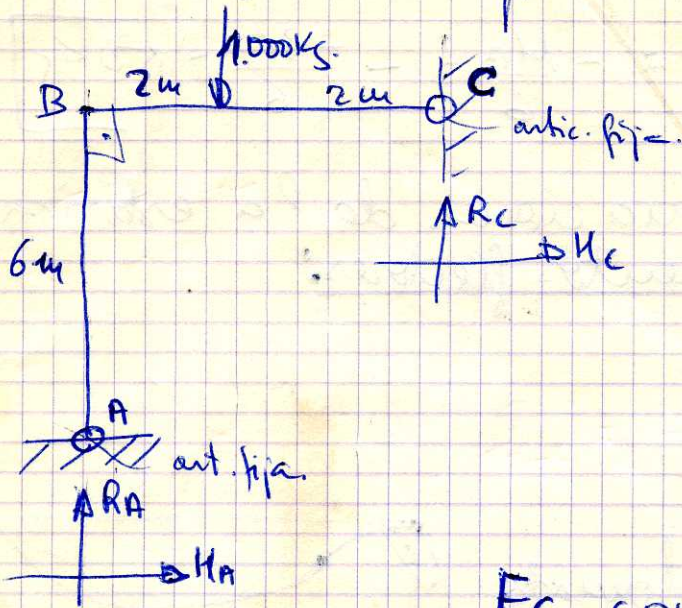 1.000Kg.
B 2m 2m C
artic. fija.
RC
HC
6m
A
art. fija.
RA
HA